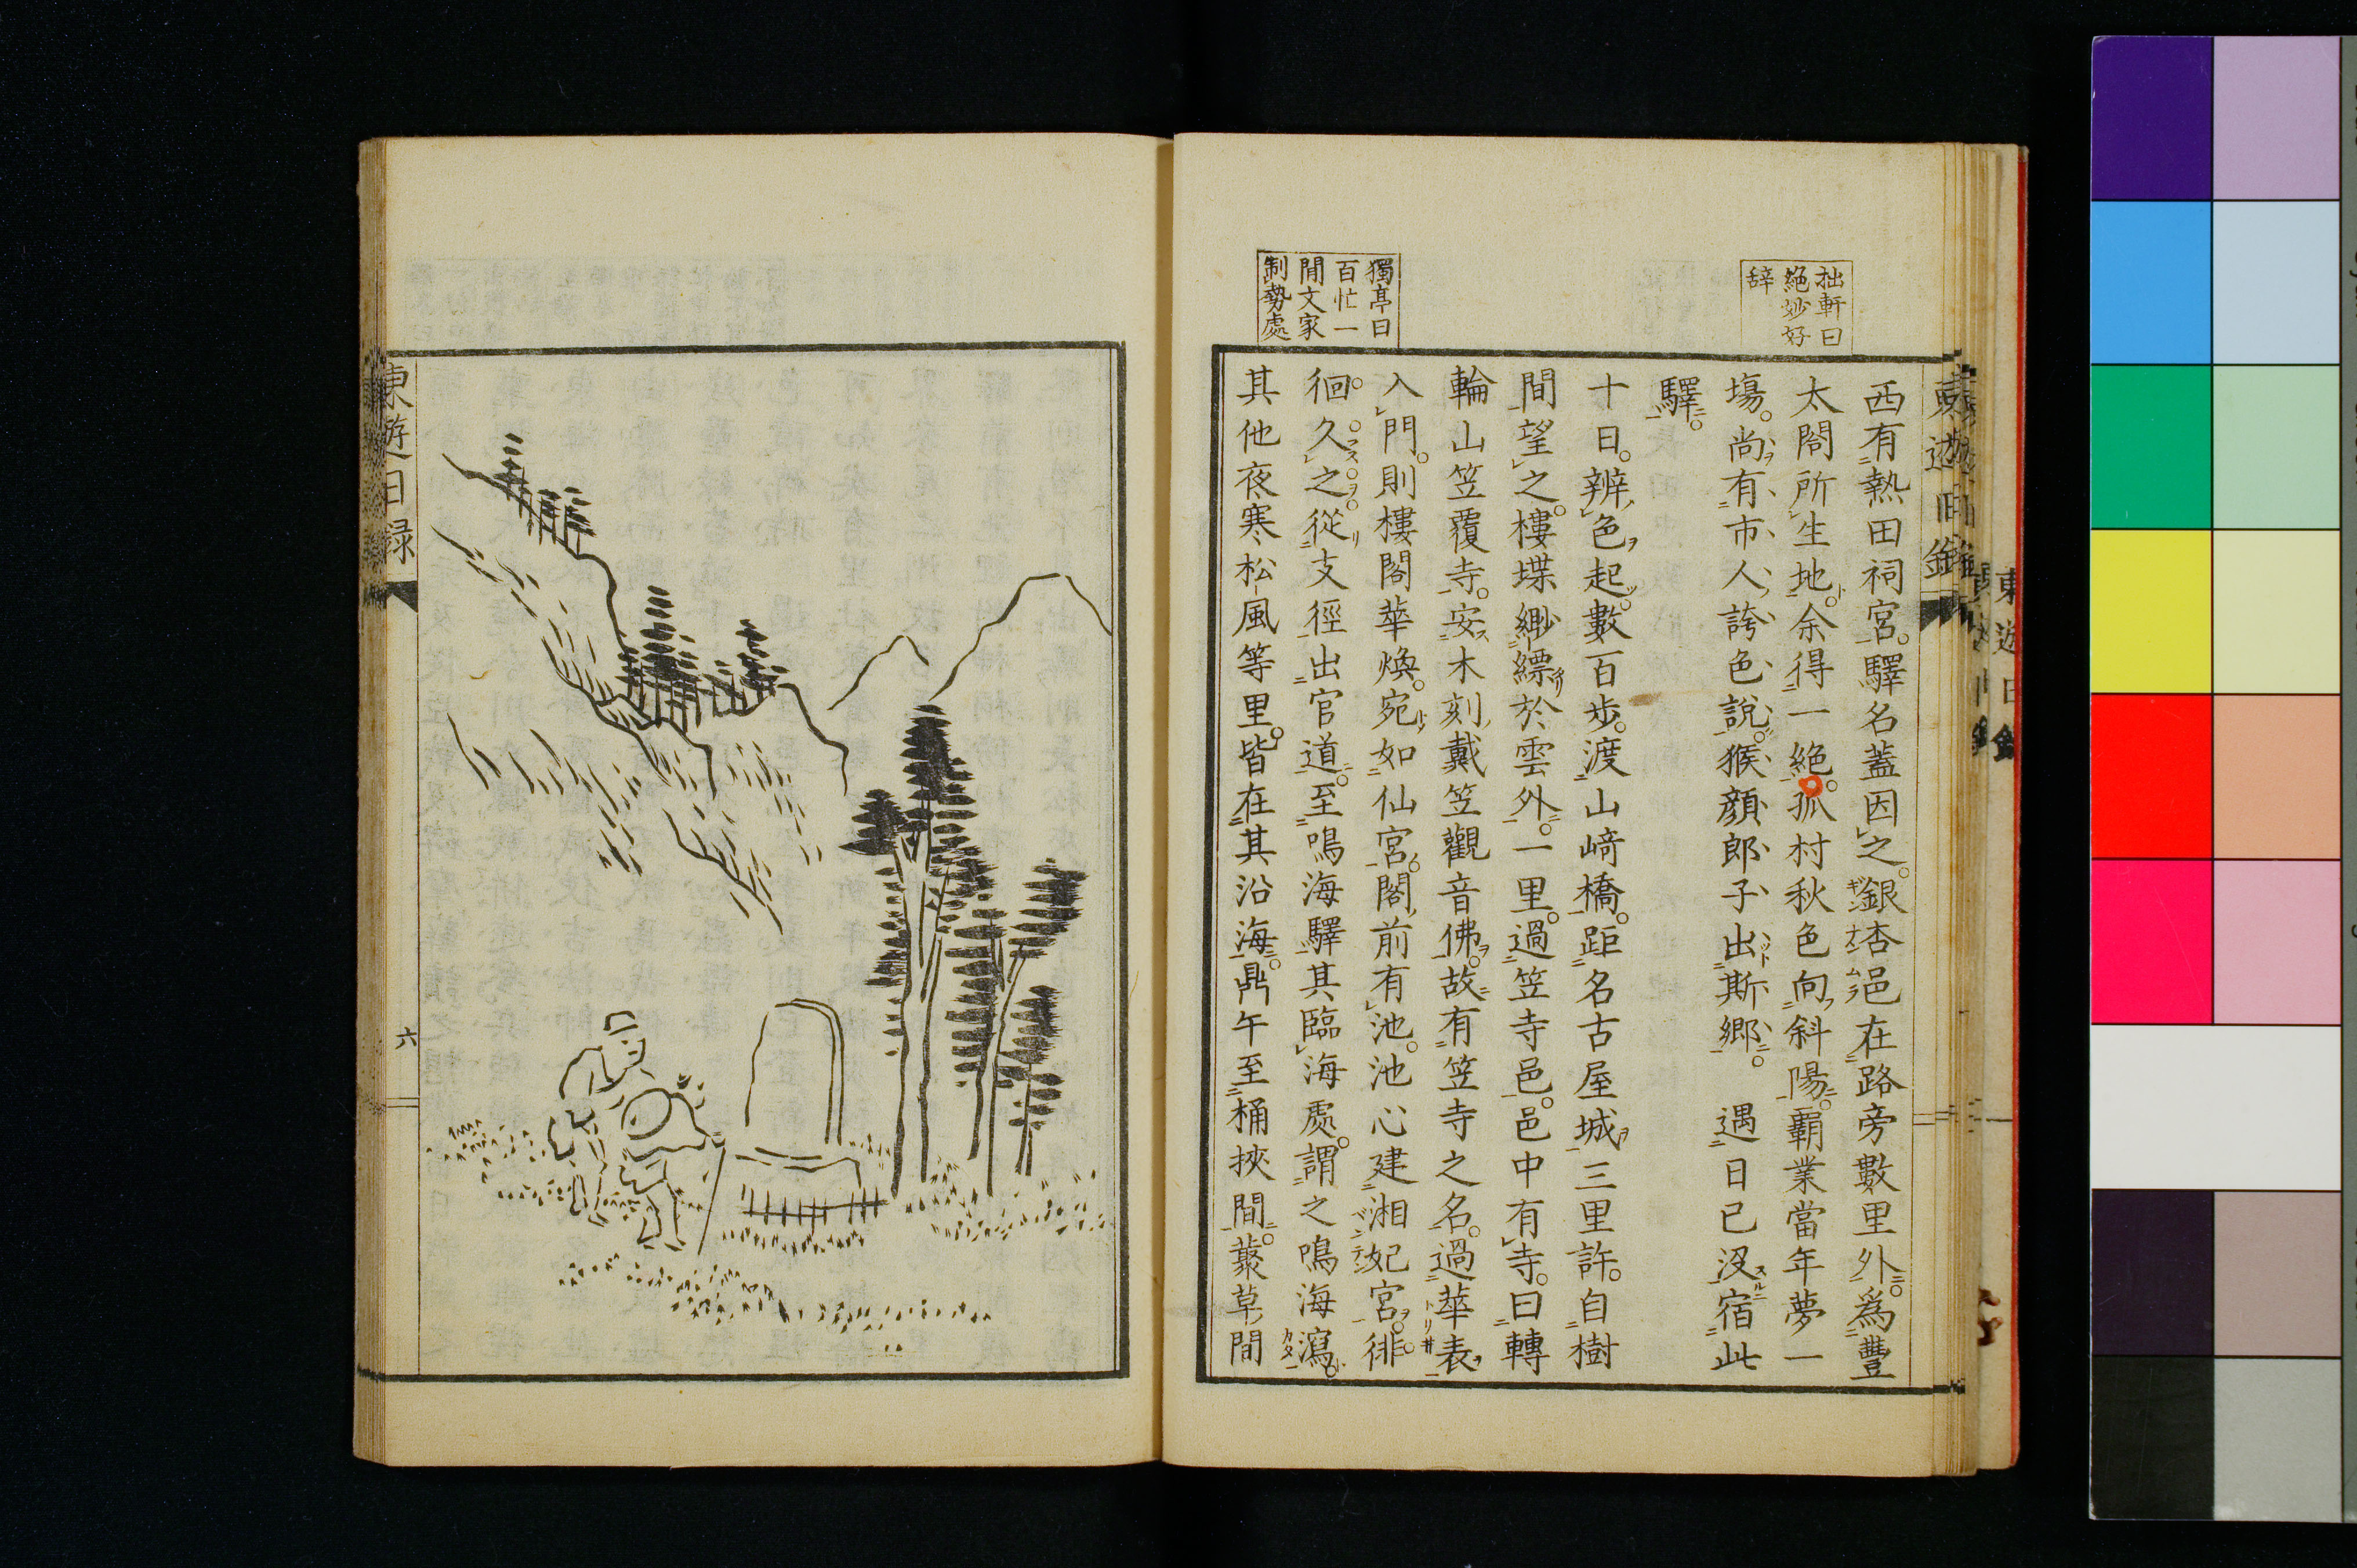 東遊日録
拙軒曰
絶妙好
辞
獨亭曰
百忙一
閒文家
制勢處
西有熱田祠宮。驛名蓋因之。銀杏邑在路旁數里外。為豐
太閤所生地。余得一絶。孤村秋色向斜陽。覇業當年夢一
塲。尚有市人誇色說。猴顏郎子出斯郷。遇日已沒宿此
驛。
十日。辨色起。數百步。渡山﨑橋。距名古屋城三里許。自樹
間望之。樓堞緲縹於雲外。一里。過笠寺邑。邑中有寺。曰轉
輪山笠覆寺。安木刻戴笠觀音佛。故有笠寺之名。過華表
入門。則樓閣華煥。宛如仙宮。閣前有池。池心建湘妃宮。徘
徊久之。從支徑出官道。至鳴海驛。其臨海處。謂之鳴海瀉。
其他夜寒松風等里。皆在其沿海。鼎午至桶挾間。叢草間
東遊日録
六